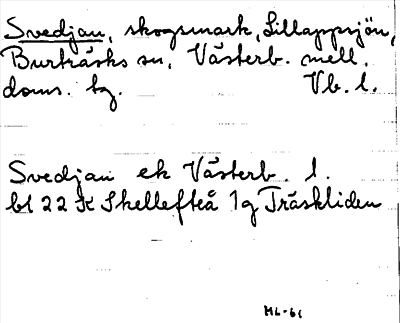 Svedjan, skogsmark, Lillappsjön,
Burträsks sn, Västerb. mell.
doms. bg. Vb. l.
Svedjan ek Västerb. l.
bl 22 K Skellefteå 1g Träskliden
ML-61